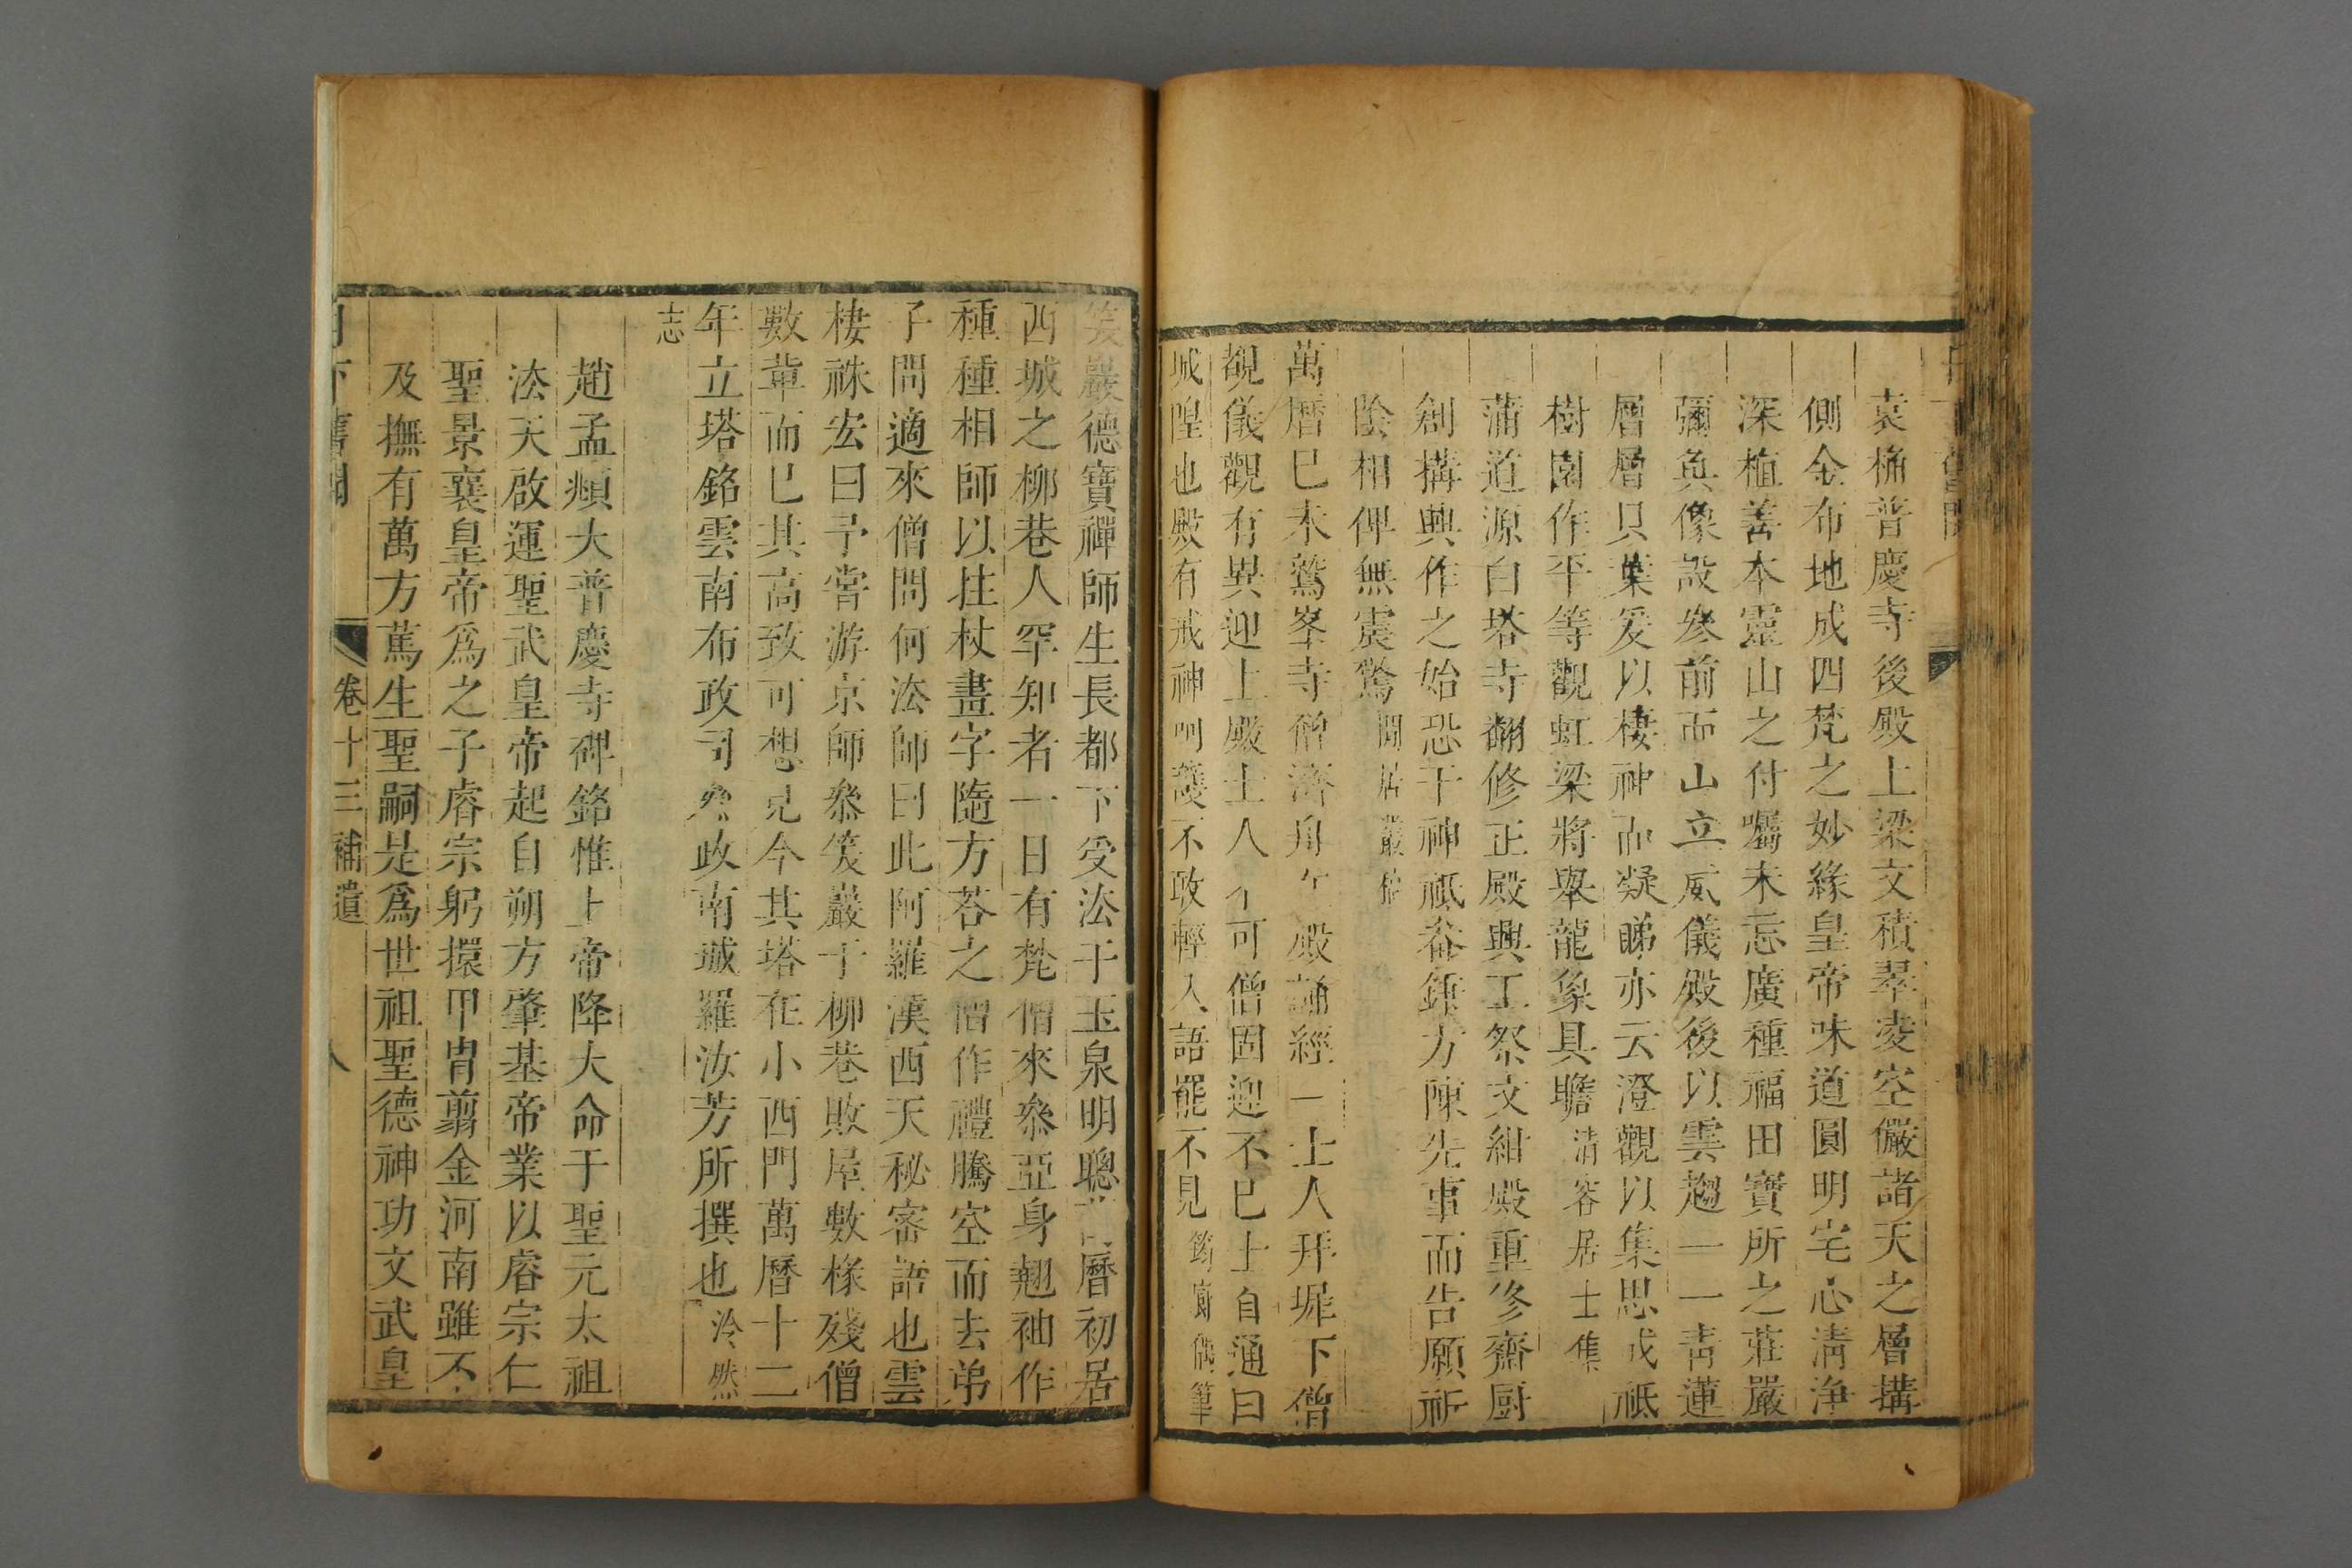 袁桷普慶寺後殿上梁文積翠凌空儼諸天之層搆
側金布地成四梵之妙緣皇帝味道圓明宅心淸淨
深植善本靈山之付囑未忘廣種福田寶所之莊嚴
彌奐像設叅前而山立威儀殿後以雲趨一一靑蓮
層層貝葉爰以棲神而凝睇亦云澄觀以集思戎祗
樹園作平等觀虹梁將舉龍象具瞻 淸容居士集
蒲道源白塔寺翻修正殿興工祭文紺殿重修齋厨
創搆興作之始恐干神祗畚鍤方陳先事而告願祈
陰相俾無震驚 閒居叢稿
萬曆己未鷲峯寺僧濟舟 殿誦經一士人拜墀下僧
覩儀觀有異迎上殿士人 可僧固迎不已士自通曰
城隍也殿有戒神呵護不敢輕入語罷不見 筠廊偶筆
笑巖德寶禪師生長都下受法于玉泉明聰 曆初居
西城之柳巷人罕知者一日有梵僧來叅亞身翹袖作
種種相師以拄杖畫字隨方荅之僧作禮騰空而去弟
子問適來僧問何法師曰此阿羅漢西天秘密語也雲
棲袾宏曰予嘗游京師叅笑巖于柳巷敗屋數椽殘僧
數輩而已其高致可想見今其塔在小西門萬曆十二
年立塔銘雲南布政司叅政南城羅汝芳所撰也 泠然
志
趙孟頫大普慶寺碑銘惟上帝降大命于聖元太祖
法天啟運聖武皇帝起自朔方肇基帝業以睿宗仁
聖景襄皇帝爲之子睿宗躬擐甲胄翦金河南雖不
及撫有萬方篤生聖嗣是爲世祖聖德神功文武皇
日下舊聞 卷十三補遺 八